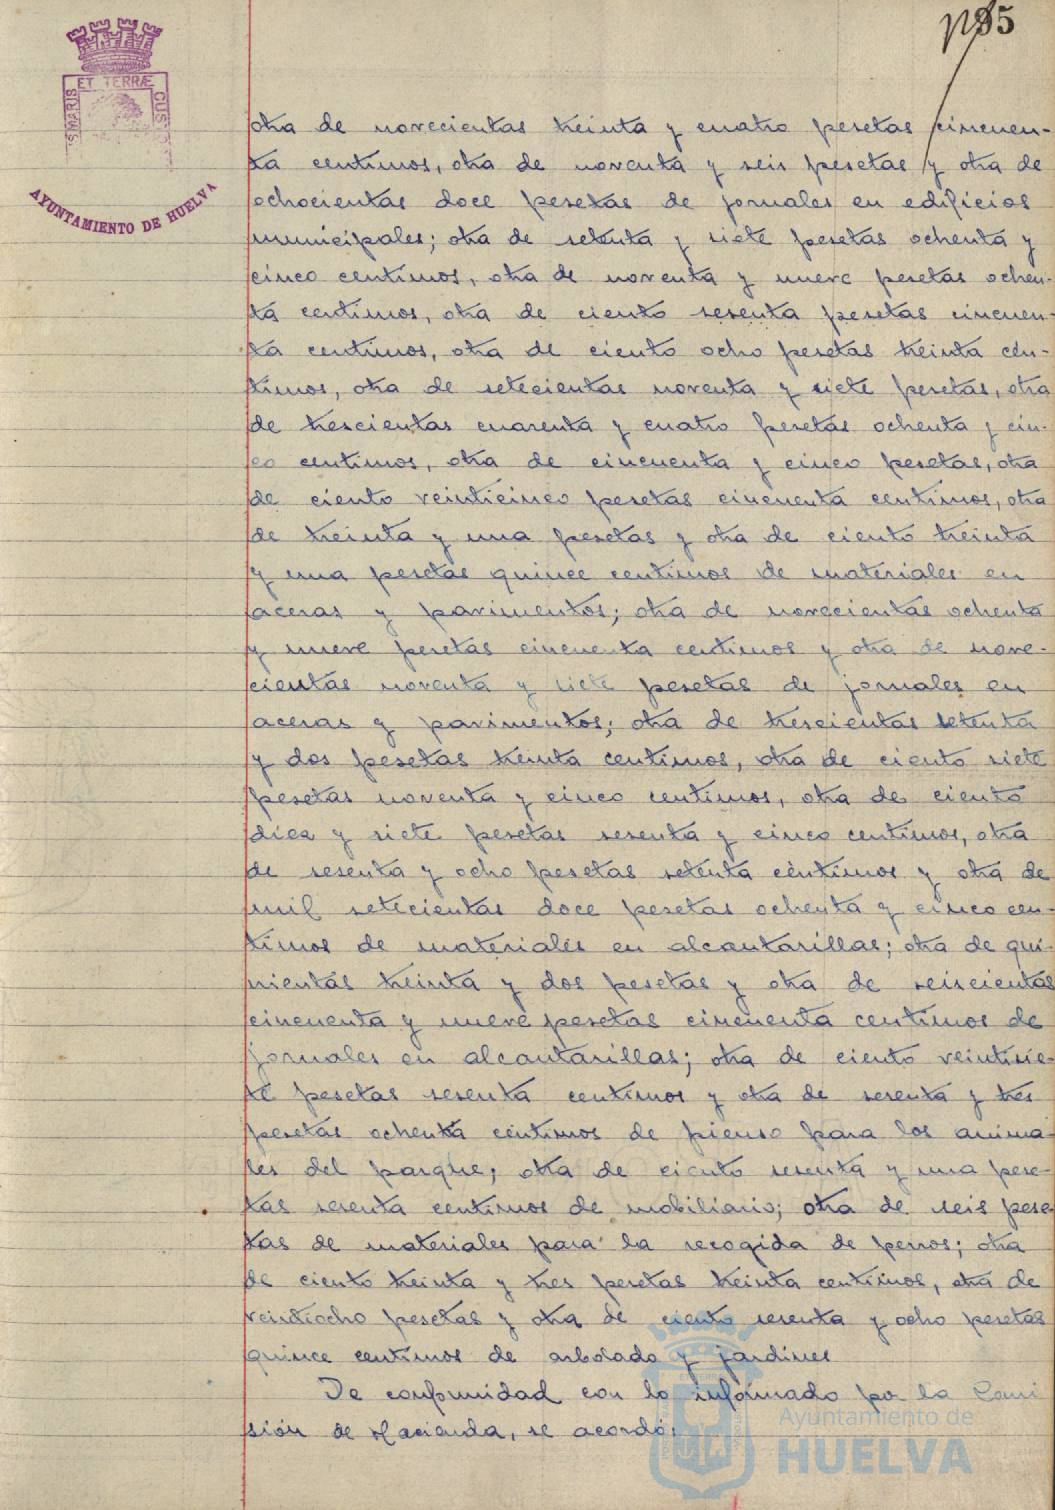 185
SMARIS ET TERRÆ CUS
AYUNTAMIENTO DE HUELVA
otra de novecientas treinta y cuatro pesetas cincuen-
ta centimos, otra de noventa y seis pesetas y otra de
ochocientas doce pesetas de jornales en edificios
municipales; otra de setenta y siete pesetas ochenta y
cinco centimos, otra de noventa y nueve pesetas ochen-
ta centimos, otra de ciento sesenta pesetas cincuen-
ta centimos, otra de ciento ocho pesetas treinta cén-
timos, otra de setecientas noventa y siete pesetas, otra
de trescientas cuarenta y cuatro pesetas ochenta y cin-
co centimos, otra de cincuenta y cinco pesetas, otra
de ciento veinticinco pesetas cincuenta centimos, otra
de treinta y una pesetas y otra de ciento treinta
y una pesetas quince centimos de materiales en
aceras y pavimentos; otra de novecientas ochenta
y nueve pesetas cincuenta centimos y otra de nove-
cientas noventa y siete pesetas de jornales en
aceras y pavimentos; otra de trescientas setenta
y dos pesetas treinta centimos, otra de ciento siete
pesetas noventa y cinco centimos, otra de ciento
diez y siete pesetas sesenta y cinco centimos, otra
de sesenta y ocho pesetas setenta céntimos y otra de
mil setecientas doce pesetas ochenta y cinco cen-
timos de materiales en alcantarillas; otra de qui-
nientas treinta y dos pesetas y otra de seiscientas
cincuenta y nueve pesetas cincuenta centimos de
jornales en alcantarillas; otra de ciento veintisie-
te pesetas sesenta centimos y otra de sesenta y tres
pesetas ochenta céntimos de pienso para los anima-
les del parque; otra de ciento sesenta y una pese-
tas sesenta centimos de mobiliario; otra de seis pese-
tas de materiales para la recogida de perros; otra
de ciento treinta y tres pesetas treinta centimos, otra de
veintiocho pesetas y otra de ciento sesenta y ocho pesetas
quince centimos de arbolado y jardines
De conformidad con lo informado por la Comi
sión de Hacienda, se acordó:
Ayuntamiento de
HUELVA